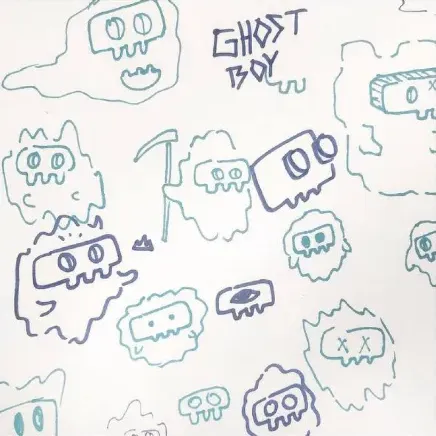 GHOST
BOY